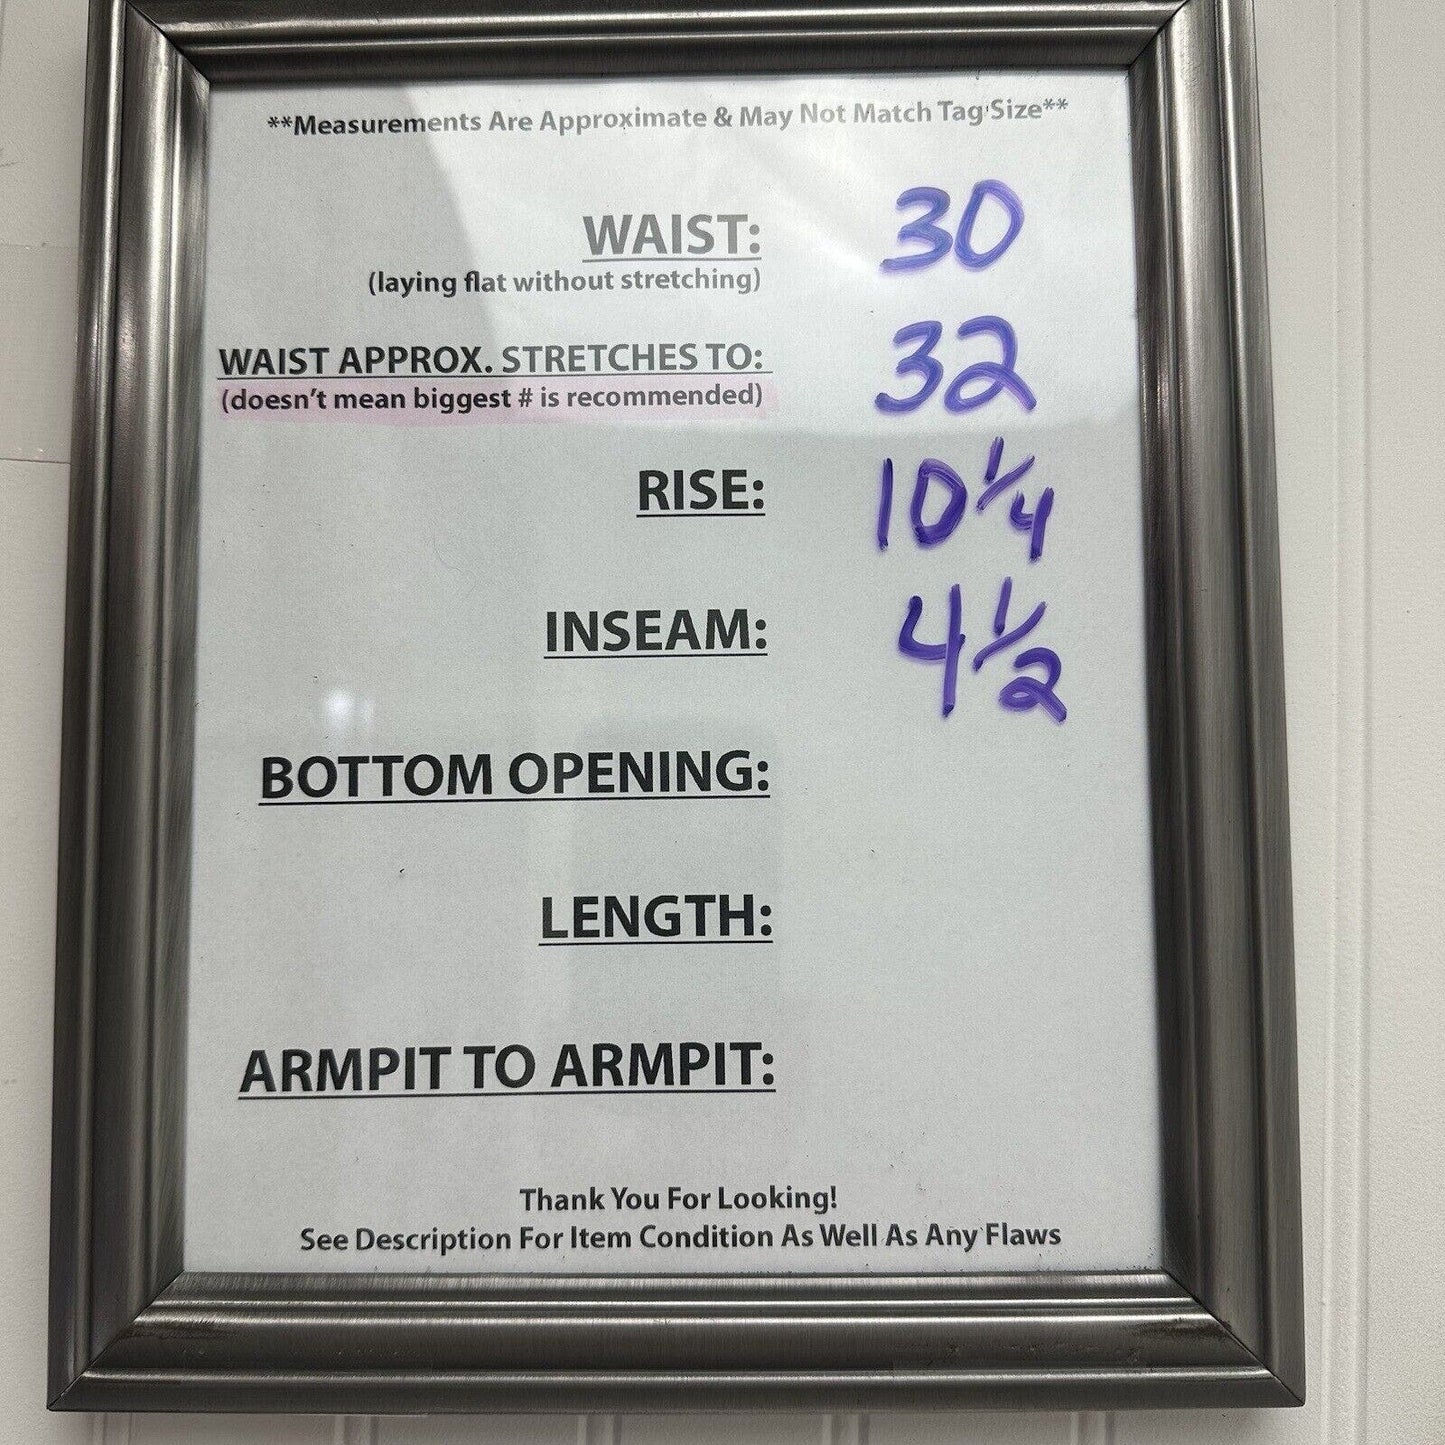 **Measurements Are Approximate & May Not Match Tag Size**
WAIST: 30
(laying flat without stretching)
WAIST APPROX. STRETCHES TO: 32
(doesn't mean biggest # is recommended)
RISE: 10 1/4
INSEAM: 4 1/2
BOTTOM OPENING:
LENGTH:
ARMPIT TO ARMPIT:
Thank You For Looking!
See Description For Item Condition As Well As Any Flaws